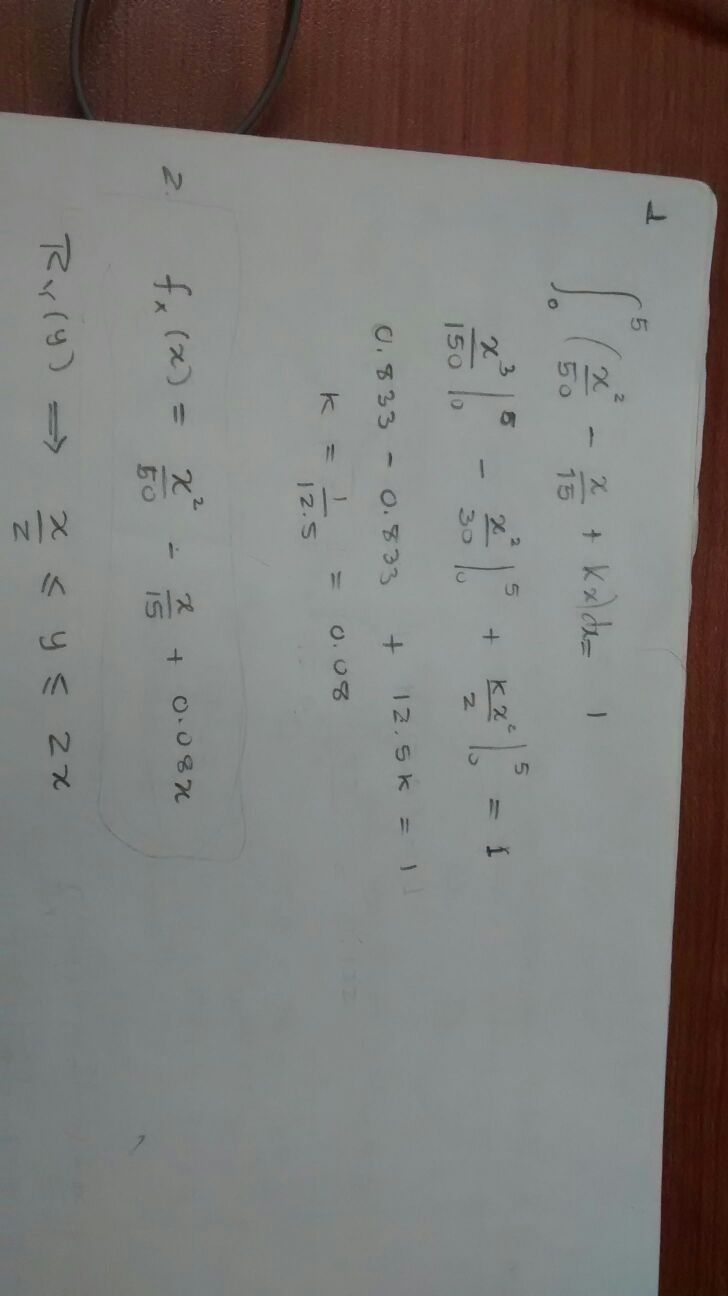 1 ∫₀⁵ (x²/50 - x/15 + kx)dx = 1
x³/150 |₀⁵ - x²/30 |₀⁵ + kx²/2 |₀⁵ = 1
0.833 - 0.833 + 12.5k = 1
k = 1/12.5 = 0.08
2. fₓ(x) = x²/50 - x/15 + 0.08x
Rᵧ(y) ⇒ x/2 ≤ y ≤ 2x